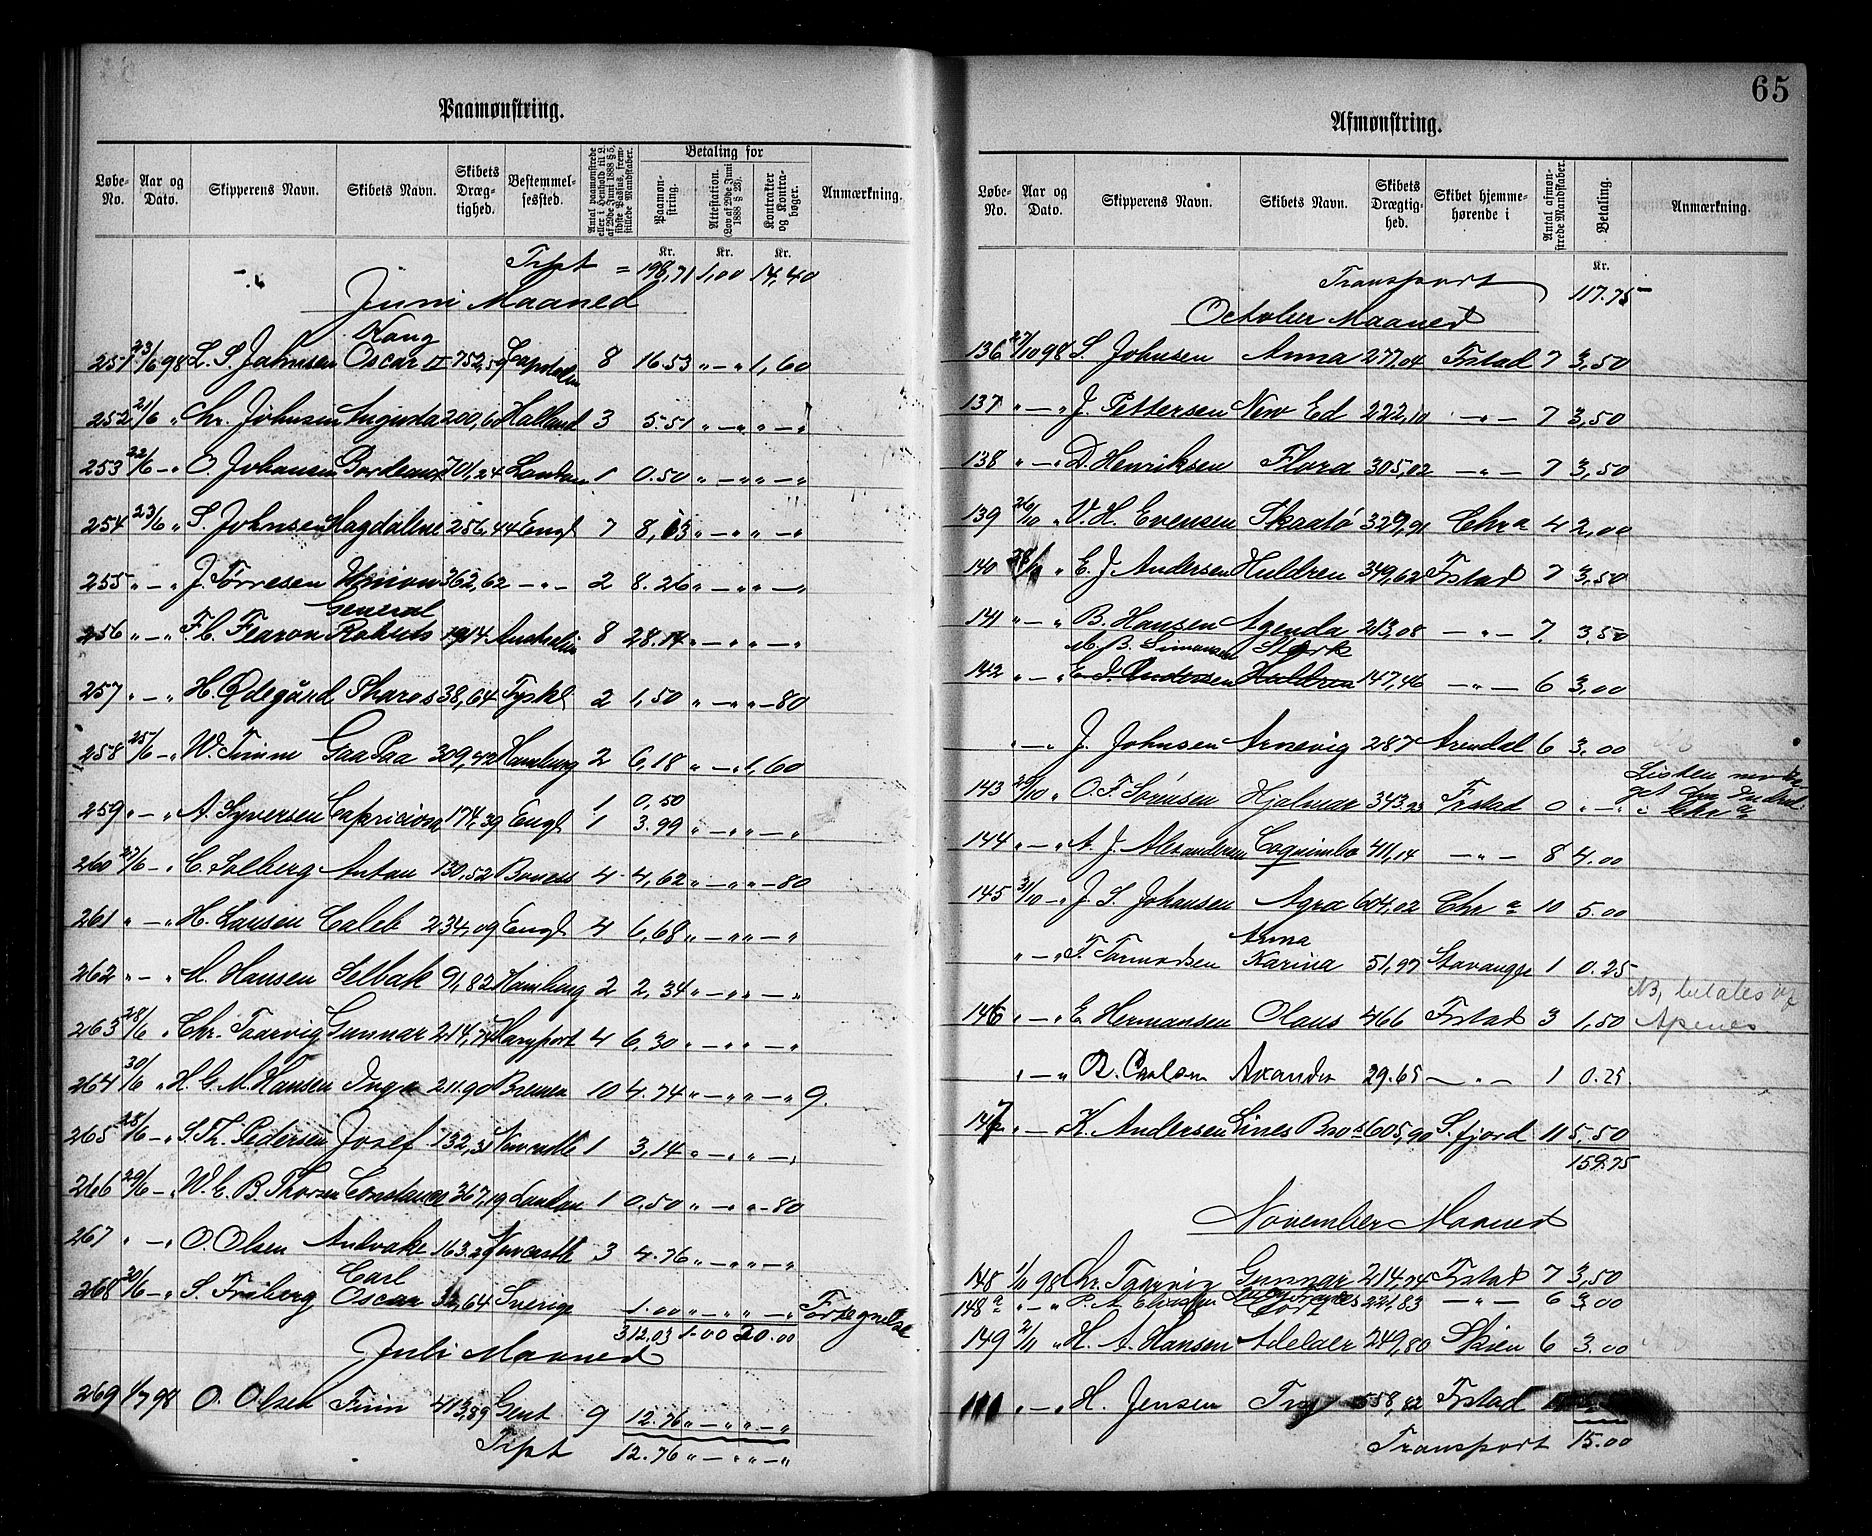 65
Paamønstring.
Løbe-No. Aar og Dato. Skipperens Navn. Skibets Navn. Skibets Drægtighed. Bestemmelsessted. Antal paamønstrede eller i Henhold til L. af 29de Juni 1888 § 5, sidste Passus, fremstillede Mandskaber. Betaling for Paamønstring. Attestation. (Lov af 29de Juni 1888 § 23). Kontrakter og Kontrabøger. Anmærkning.
Kr. Kr. Kr.
Tspt = 198,71 1,00 14,40
Juni Maaned
Kong
251 23/6 98 L. S. Johnsen Oscar II 752,59 8 16.53 " — " 1,60
252 21/6 " Chr. Johnsen Augusta 200,60 Halland 3 5.51 " — " " — "
253 22/6 — " O. Johansen Bordeaux 701,24 London 1 0.50 " — " " — "
254 23/6 " S. Johnsen Magdalene 256,44 Engl 7 8,13 " — " " — "
255 " — " J. Tørresen Union 362,62 — " — 2 8.26 " — " " — "
General
256 " — " F. C. Fearon Roberts 1914 Australien 8 28.14 " — " " — "
257 " — " H. Ødegård Pharos 38,64 Tyskl 2 1,50 " — " " — 80
258 25/6 — " W. Timm Gaa Paa 309,72 Hamburg 2 6,18 " — " 1,60
1 0,50
259 " — " A. Syversen Capricion 174,39 Engl 1 3.99 " — " " — "
260 27/6 — " C. Solberg Anton 130,52 Boness 4 4,62 " — " " — 80
261 " — " H. Larsen Caleb 234,09 Engl 4 6,68 " — " " — "
262 " — " M. Hansen Selbak 91,82 Hamburg 2 2,34 " — " " — "
263 28/6 " Chr. Taarvig Gunnar 214,74 Haryport 4 6,30 " — " " — "
264 30/6 " H. G. M. Hansen Inga 211.90 Bremen 10 4.74 " — " " — " 9.
265 28/6 — " S. Th. Pedersen Josef 132,31 Newcastle 1 3,14 " — " " — "
266 29/6 — " W. E. B. Thorsen Constance 367,19 London 1 0,50 " — " " — 80
267 " — " O. Olsen Andvake 163.29 Newcastle 3 4.76 " — " " — "
Carl
268 30/6 — " S. Friberg Oscar 32,64 Sverige 1.00 " — " " — " Fortegnelse
312.03 1.00 20.00
Juli Maaned
269 1/7 98 O. Olsen Finn 413,89 Gent 9 12.76 " — " " — "
Tspt 12.76 " — " " — "
Afmønstring.
Løbe-No. Aar og Dato. Skipperens Navn. Skibets Navn. Skibets Drægtighed. Skibet hjemmehørende i Antal afmønstrede Mandskaber. Betaling. Anmærkning.
Kr.
Transport 117.75
October Maaned
136 27/10 98 S. Johnsen Anna 277,04 Frstad 7 3,50
137 " — " J. Pettersen New Ed 222,10 — " — 7 3,50
138 " — " D. Henriksen Flora 305,02 — " — 7 3,50
139 26/10 " V. H. Evensen Skaatö 329,91 Chr a 4 2,00
140 28/ " E. J. Andersen Huldren 349,62 Frstad 7 3,50
141 " — " B. Hansen Agenda 213,08 — " — 7. 3.50
M. B. Simonsen Stærk
142 " — " E. J. Andersen Huldren 147,46 — " — 6 3,00
" — " J. Johnsen Arnevig 287 Arendal 6 3.00
143 29/10 " O. F. Sörensen Hjalmar 343.23 Frstad 0 " — " Listen
144 " — " A. J. Alexandersen Coquimbo 411,14 — " — 8 4.00
145 31/10 — " J. S. Johansen Agra 604,02 Chr a 10 5.00
Anna
" — " T. Tormodsen Karina 51,97 Stavanger 1 0.25
NB, betales af
146 " — " E. Hermansen Olaus 466 Frstad 3 1,50 Apenes
" — " Carlsen Axandra 29.65 — " — 1 0.25
147 " — " K. Andersen Lines Bros 605,90 S.fjord 11 5,50
159.75
November Maaned
148 1/11 98 Chr. Taarvig Gunnar 214,74 Frstad 7 3,50
148 a " — " 221,83 — " — 6 3,00
149 2/11 " H. A. Hansen Adelaer 249,80 Skien 6 3.00
" — " H. Jensen 558,82 Frstad
Transport 15.00